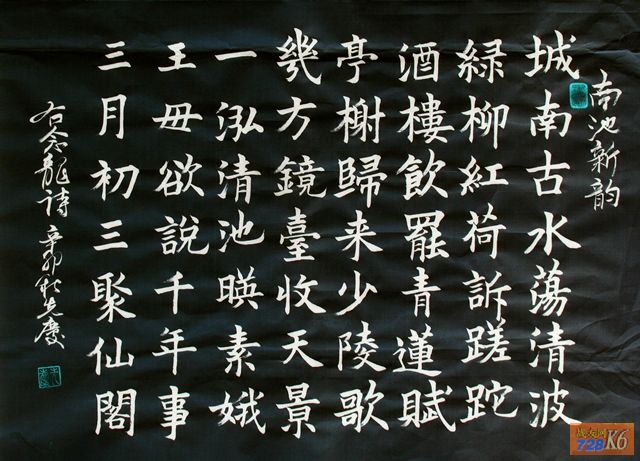 南池新韵
城南古水荡清波
緑柳紅荷訴蹉跎
酒樓飲罷青蓮賦
亭榭歸来少陵歌
幾方鏡臺收天景
一泓清池暎素娥
王母欲說千年事
三月初三聚仙閣
右念龍詩 辛卯秋志慶
战友网
728K6